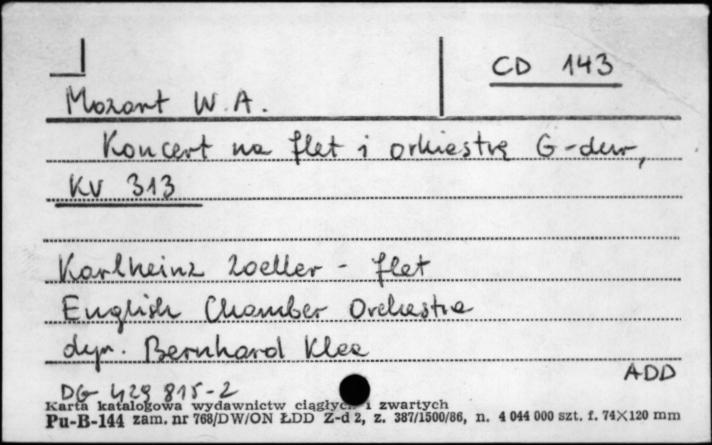 CD 143
Mozart W.A.
Koncert na flet i orkiestrę G-dur,
KV 313
Karlheinz Zoeller - flet
English Chamber Orchestra
dyr. Bernhard Klee
ADD
DG 429 815-2
Karta katalogowa wydawnictw ciągłych i zwartych
Pu-B-144 zam. nr 768/DW/ON ŁDD Z-d 2, z. 387/1500/86, n. 4 044 000 szt. f. 74×120 mm